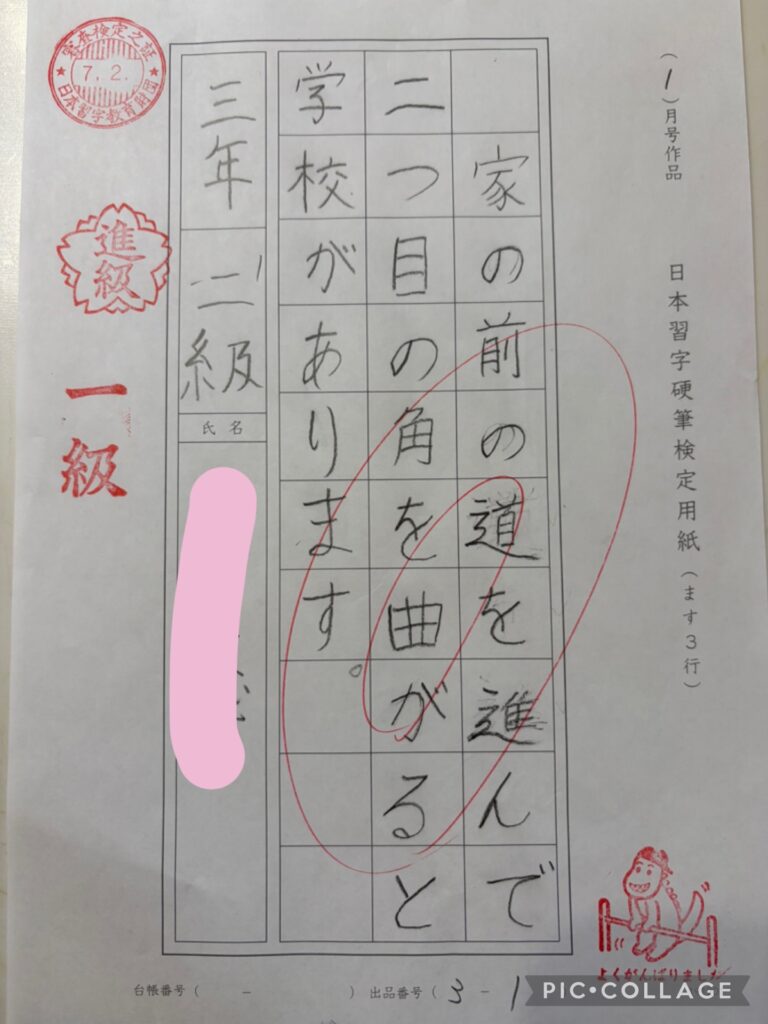 (1)月号作品
日本習字硬筆検定用紙(ます3行)
家の前の道を進んで
二つ目の角を曲がると
学校があります。
三年
二級
氏名
審査検定之証
7.2.
日本習字教育財団
進級
一級
よくがんばりました
台帳番号( - )
出品番号(3-1
PIC・COLLAGE